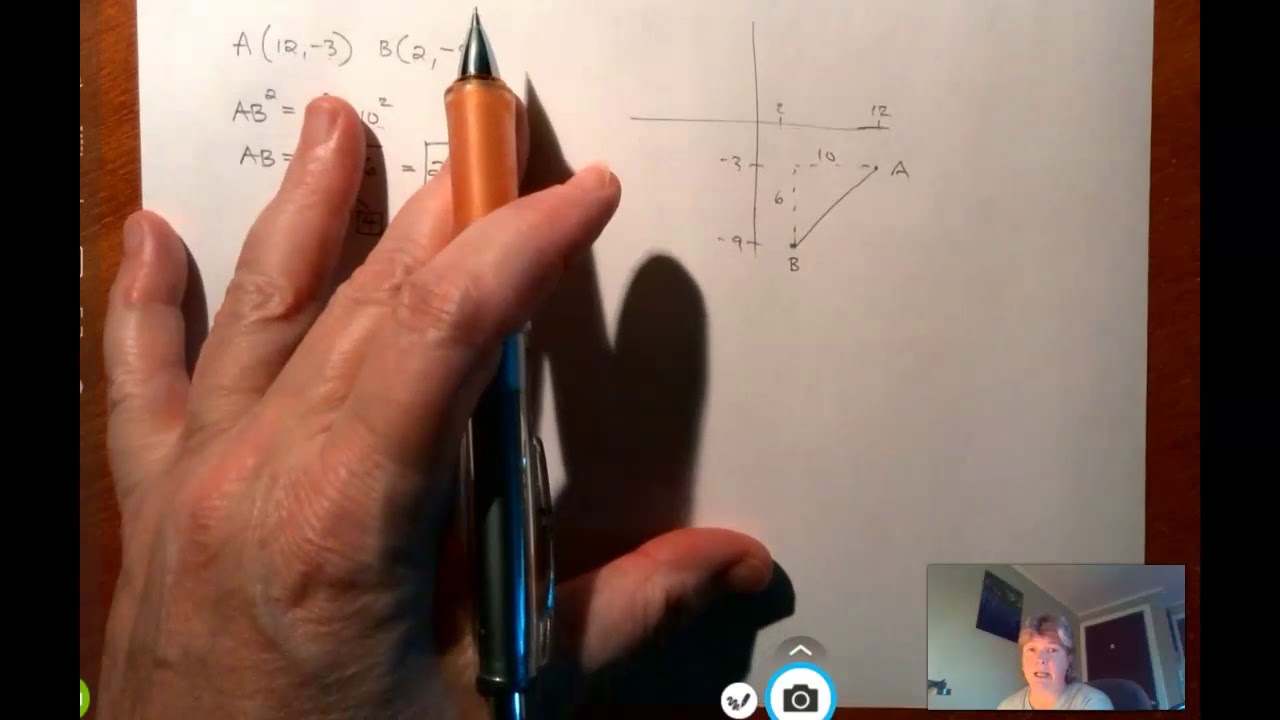 A (12,-3) B(2,-
AB² = 10²
AB = 6 =
4
2 12
-3 10 A
6
-9
B